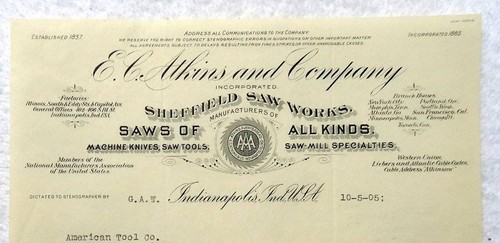 ESTABLISHED 1857.
ADDRESS ALL COMMUNICATIONS TO THE COMPANY.
INCORPORATED 1885.
WE RESERVE THE RIGHT TO CORRECT STENOGRAPHIC ERRORS IN QUOTATIONS OR OTHER IMPORTANT MATTER
ALL AGREEMENTS SUBJECT TO DELAYS RESULTING FROM FIRES, STRIKES OR OTHER UNAVOIDABLE CAUSES.
E. C. Atkins and Company
INCORPORATED.
SHEFFIELD SAW WORKS.
MANUFACTURERS OF
SAWS OF ALL KINDS.
MACHINE KNIVES, SAW TOOLS, SAW-MILL SPECIALTIES.
AAA
Factories
Illinois, South & Eddy Sts. & Capitol Ave.
General Offices 402-406 S. Ill. St.
Indianapolis, Ind. USA.
Branch Houses.
New York City Portland Ore.
Memphis, Tenn.
Atlanta Ga. San Francisco, Cal.
Minneapolis, Minn.
Toronto, Can.
Members of the
National Manufacturers Association
of the United States.
Western Union.
Liebers and Atlantic Cable Codes.
Cable Address, "Atkinsaw"
DICTATED TO STENOGRAPHER BY G.A.T. Indianapolis, Ind. U.S.A. 10-5-05;
American Tool Co.